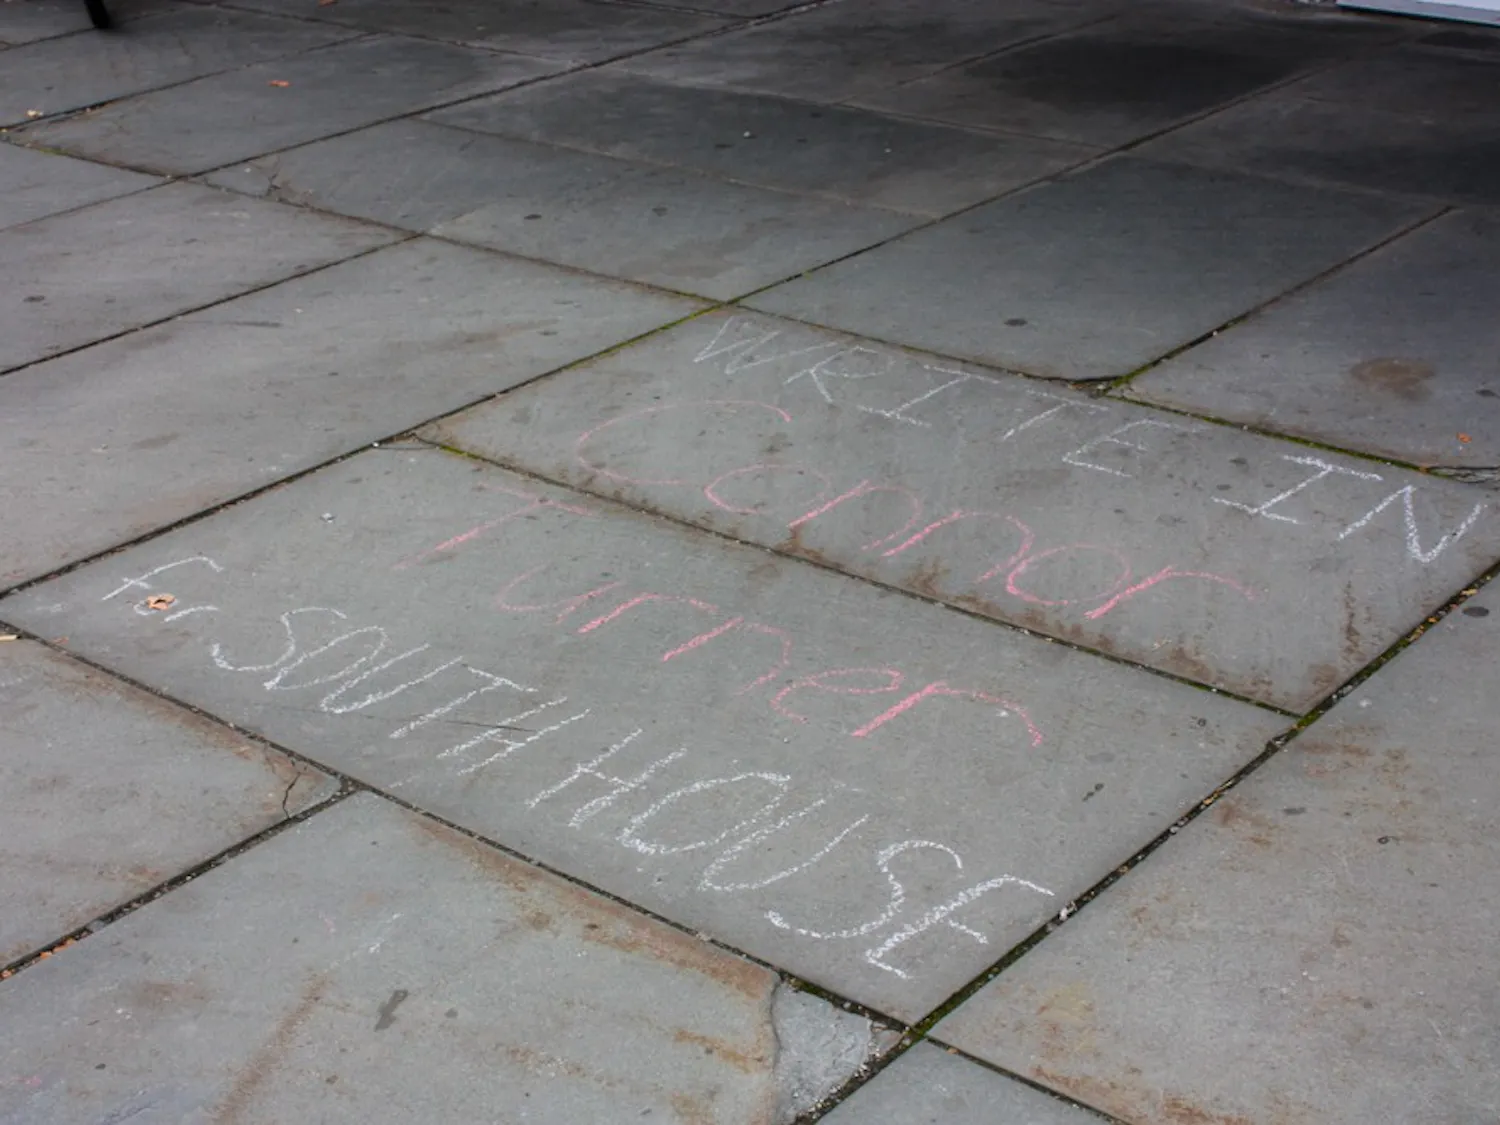 WRITE IN
Connor
Turner
For SOUTH HOUSE